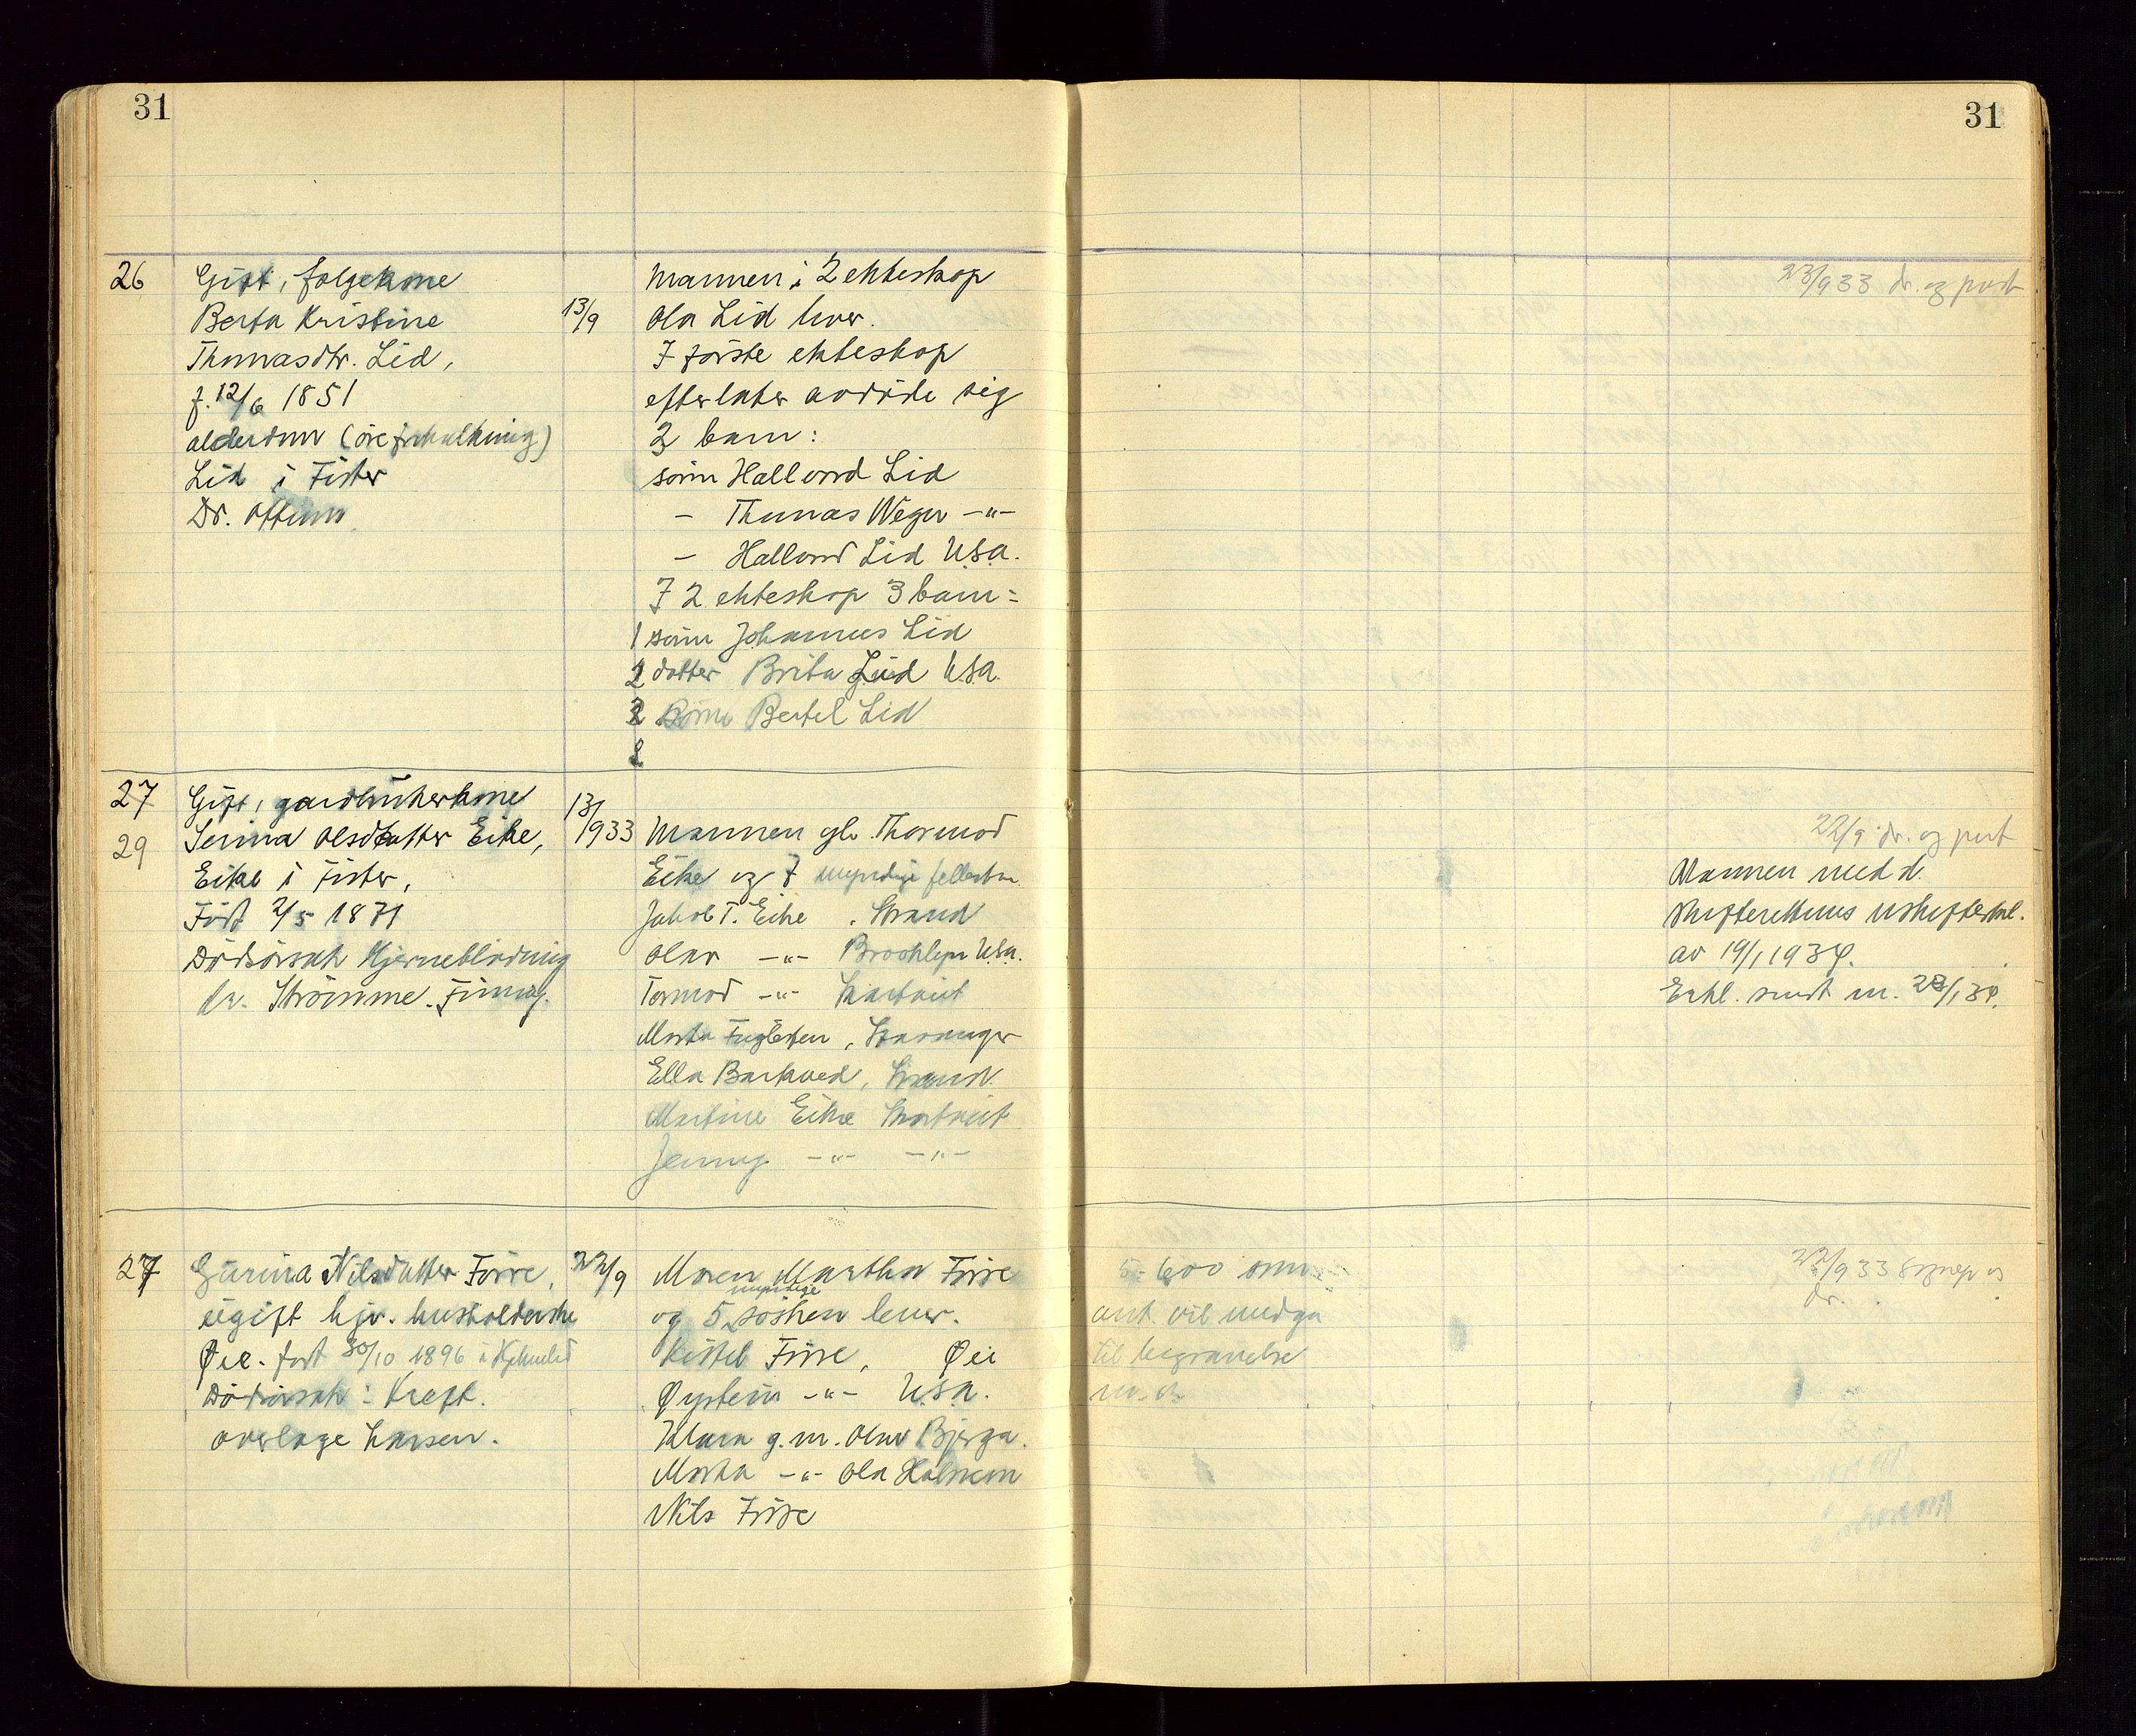 31
31
26
Gift, folgekone
Berta Kristine
Thomasdtr. Lid,
f. 12/6 1851
alderdom (åreforkalkning)
Lid i Fister
Dr. Offenn
13/9
Mannen i 2 ekteskap
Ola Lid lever.
I første ekteskap
efterlater avdøde sig
3 barn:
sønn Hallvard Lid
- Thomas Weger -"-
- Hallvard Lid U.S.A.
I 2 ekteskap 3 barn:
1 sønn Johannes Lid
2 datter Brita Lid U.S.A.
3 sønn Bertel Lid
23/9 33 dr. og prest
27
29
Gift, gardbrukerkone
Serina Olsdatter Eike,
Eike i Fister,
Født 2/5 1871
Dødsårsak Hjerneblødning
dr. Strømme. Finnøy.
13/
1933
Mannen gb. Thormod
Eike og 7 myndige fellesbarn
Jakob T. Eike, Strand
Olav -"- Brooklyn U.S.A.
Tormod -"- Hartveit
Marta Fuglesten, Stavanger
Ella Barkved, Strand
Martine Eike Hartveit
Jenny -"- -"-
22/9 dr. og prest
Mannen medd.
skifterettens uskifteerkl.
av 19/1 1934.
Erkl. sendt m. 23/1 34.
27
Gurina Nilsdatter Førre,
ugift hjv. husholderske
Øie. født 30/10 1896 i Hjelmeland
Dødsårsak: Kreft.
overlæge Larsen.
22/9
Moren Martha Førre
og 5 myndige søsken lever.
Kittel Førre, Øie
Øystein -"- U.S.A.
Klara g.m. Olav Bjerga.
Marta -"- Ola Halvmon
Nils Førre
5-600 som
ant. vil medgå
til begravelse
m.v.
22/9 33 Sogneprs
dr.